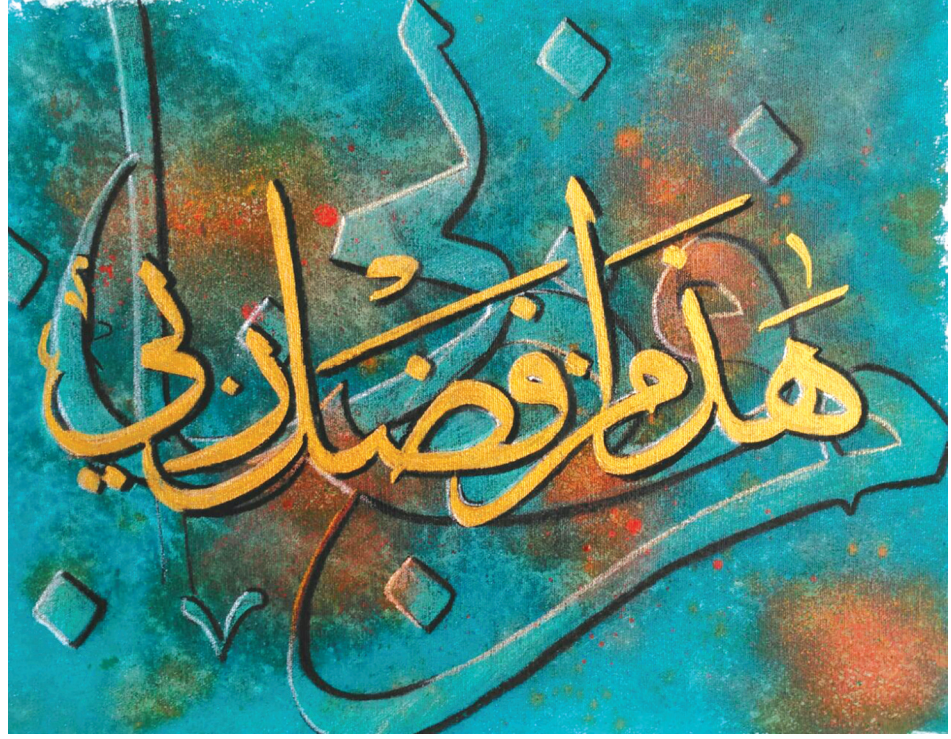 هٰذَا من فَضْل ربي